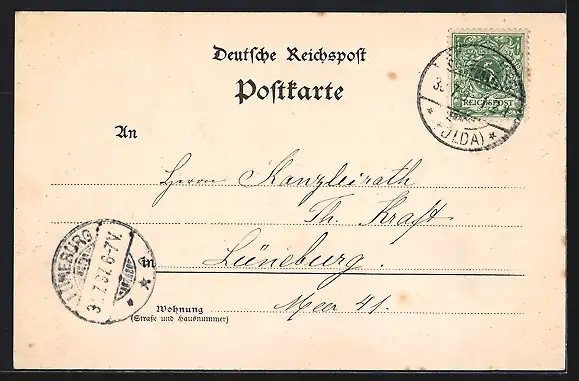 Deutsche Reichspost
Postkarte
REICHSPOST
(FULDA)
An
Herrn Kanzleirath
Th. Kraft
in Lüneburg.
LÜNEBURG
6-7V.
Wohnung
(Straße und Hausnummer)
Meer 41.